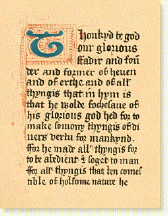 Thonkyd be god
our glorious
fader and foun
der and former of heuen
and of erthe and of all
thyngis that in hym is
that he wolde foucheſaue of
his glorious god hed for to
make ſo mony thyngis of di
uers vertu for mankynd.
ffor he made all thyngis for
to be abedient & ſoget to man
ffor all thyngis that ben comeſ
tible of holſome nature he